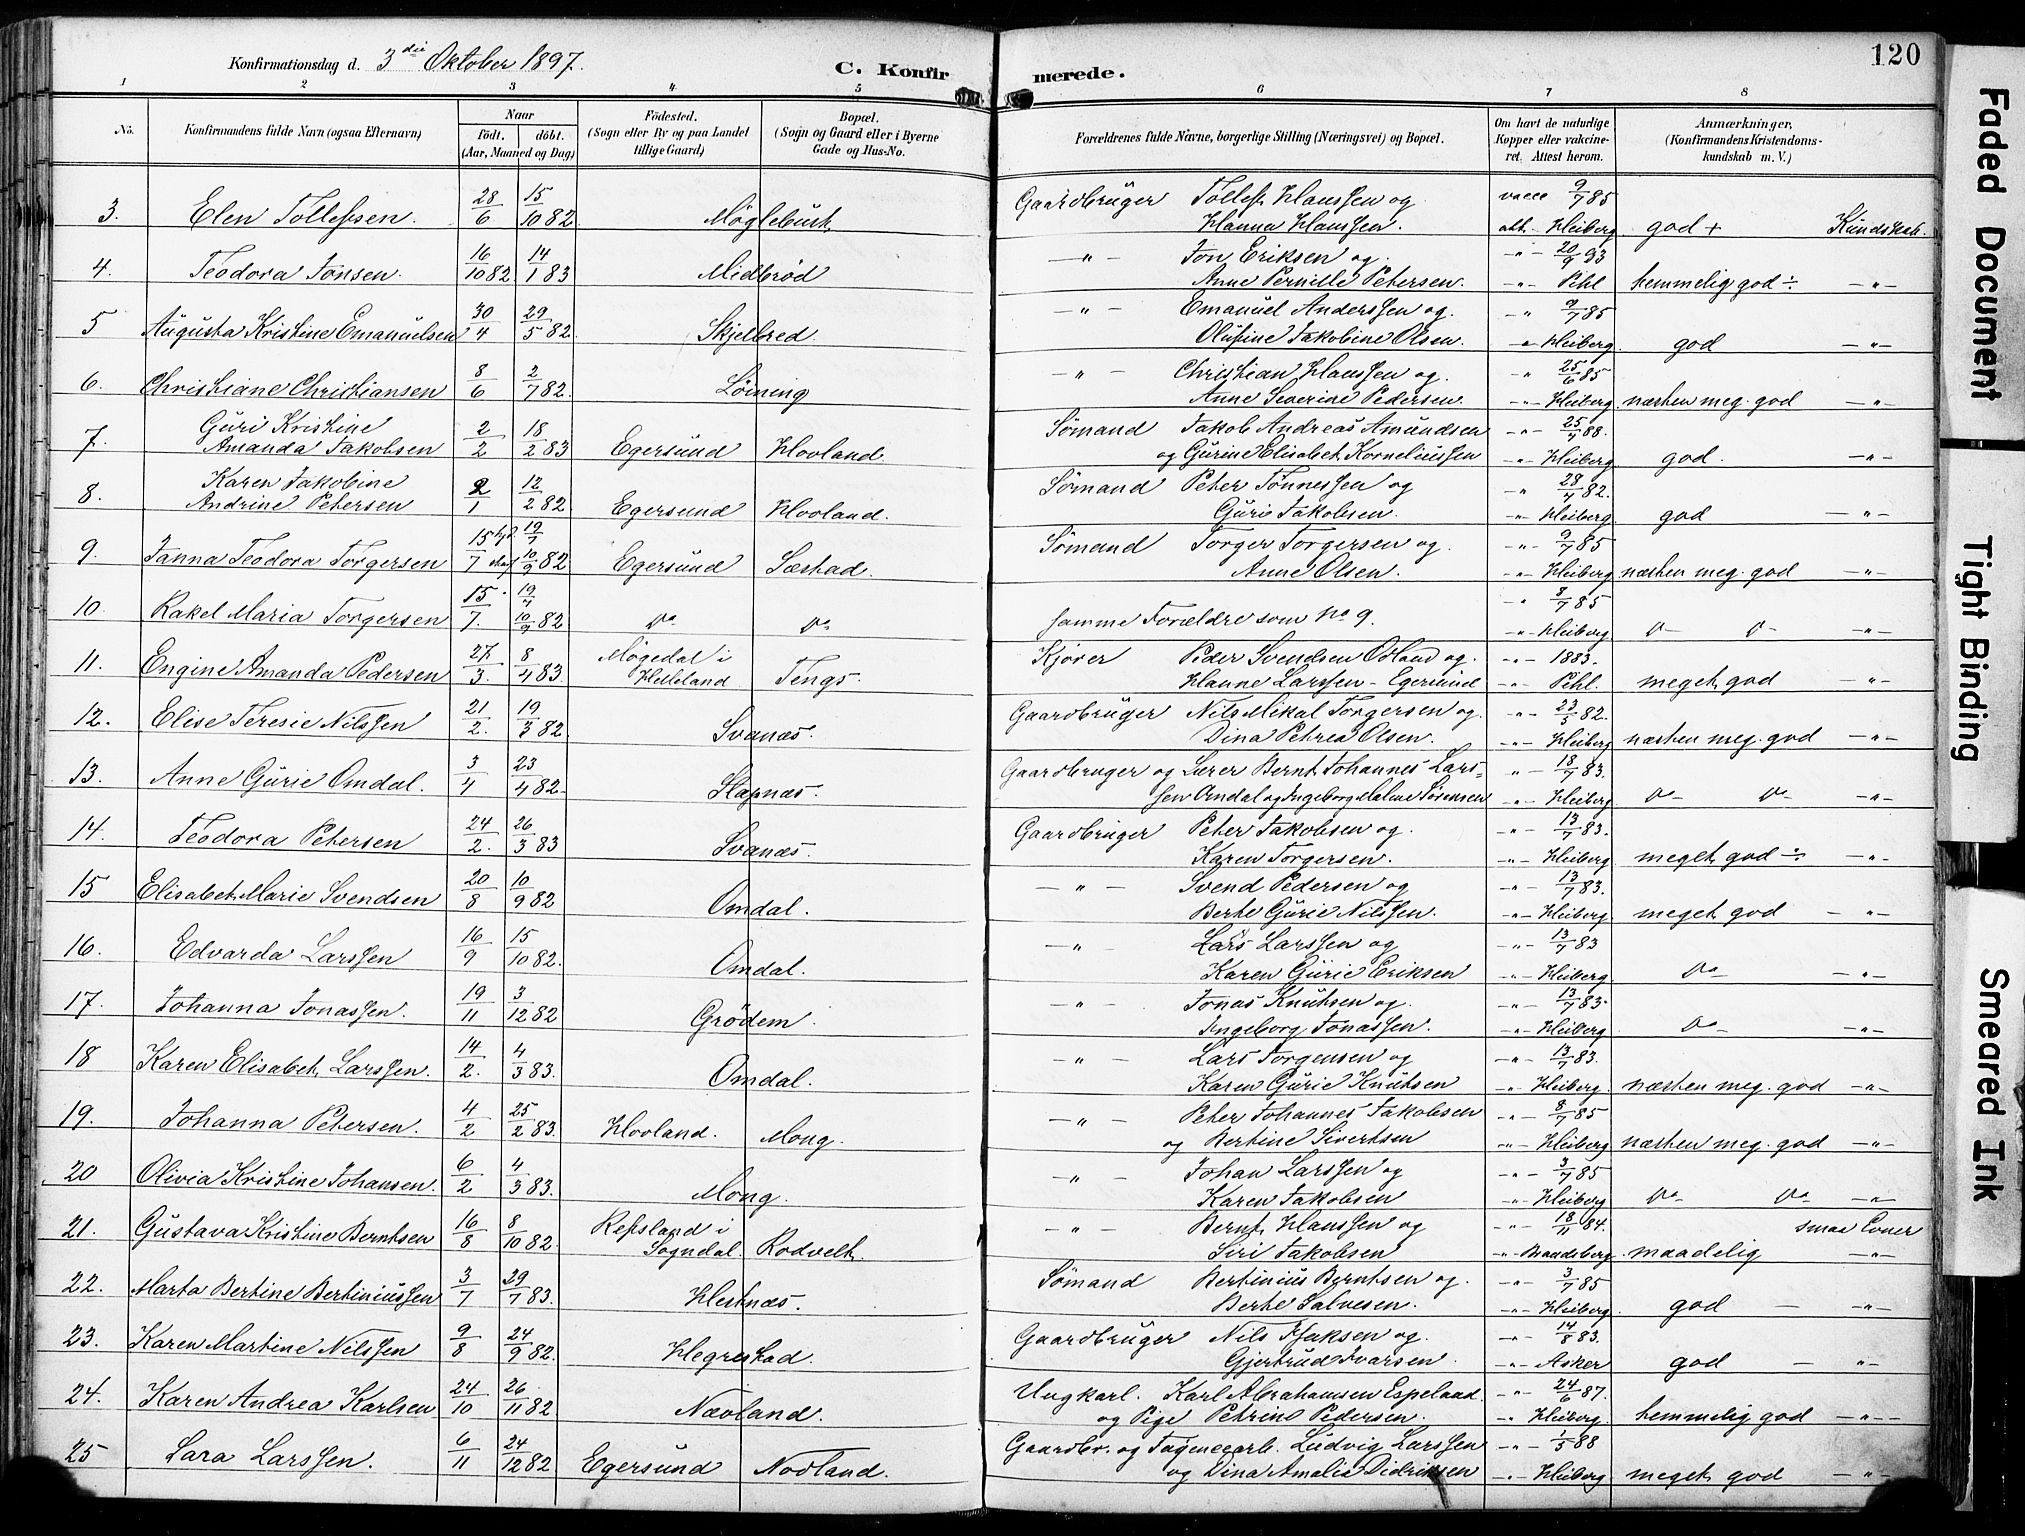 Konfirmationsdag d. 3die Oktober 1897.
C. Konfirmerede.
120
1 2 3 4 5 6 7 8
No.
Konfirmandens fulde Navn (ogsaa Efternavn)
Naar
Födt. döbt.
(Aar, Maaned og Dag)
Födested.
(Sogn eller By og paa Landet
tillige Gaard)
Bopæl.
(Sogn og Gaard eller i Byerne
Gade og Hus-No.
Forældrenes fulde Navne, borgerlige Stilling (Næringsvei) og Bopæl.
Om havt de naturlige
Kopper eller vakcine-
ret. Attest herom.
Anmærkninger.
(Konfirmandens Kristendoms-
kundskab m. V.)
3. Elen Tollefsen. 28/6 15/10 82. Møglebust Gaardbruger Tollef Hanssen og vacc 9/7 85
Hanna Hanssen. att. Heiberg god + Kundskab.
4. Teodora Jonsen. 16/10 82. 14/1 83 Midbrød –"– Jon Eriksen og –"– 20/9 93
Anne Pernille Petersen. –"– Pihl temmelig god ÷ –"–
5 Augusta Kristine Emanuelsen 30/4 29/5 82. Skjelbred –"– Emanuel Anderssen og –"– 9/7 85
Olufine Jakobine Olsen. –"– Heiberg. god –"–
6. Christiane Christiansen 8/6 2/7 82. Løining –"– Christian Hanssen og –"– 25/6 85
Anne Severine Pedersen –"– Heiberg. næsten meg. god –"–
7. Guri Kristine
Amanda Jakobsen 2/2 18/2 83 Egersund Hovland Sømand Jakob Andreas Amundsen –"– 25/4 88.
og Gurine Elisabet Korneliussen –"– Heiberg god. –"–
8. Karen Jakobine
Andrine Petersen 2/1 12/2 82. Egersund Hovland. Sømand Peter Tønnessen og –"– 28/4 82.
Guri Jakobsen. –"– Heiberg. god –"–
9. Janna Teodora Torgersen 15/7 19/7 10/9 82 Egersund Sæstad. Sømand Torger Torgersen og –"– 9/7 85
Anne Olsen. –"– Heiberg næsten meg. god –"–
10. Rakel Maria Torgersen 15/7. 19/7 10/9 82 Do Do Samme Forældre som No 9. –"– 8/7 85
–"– Heiberg Do Do –"–
11. Engine Amanda Pedersen 27/3. 8/4 83. Møgedal i
Helleland Tengs Kjører Peder Svendsen Odland og –"– 1883.
Hanne Larssen – Egersund –"– Pihl. meget god –"–
12. Elise Teresie Nilssen 21/2. 19/3 82. Svanæs. Gaardbruger Nils Mikal Torgersen og –"– 23/5 82.
Dina Petrea Olsen. –"– Heiberg næsten meg. god –"–
13. Anne Gurie Omdal. 3/4 23/4 82. Stapnæs. Gaardbruger og Lærer Bernt Johannes Lars- –"– 18/7 83.
sen Omdal og Ingeborg Malene Sørensen –"– Heiberg Do Do –"–
14. Teodora Petersen 24/2. 26/3 83 Svanæs. Gaardbruger Peter Jakobsen og –"– 13/7 83.
Karen Torgersen. –"– Heiberg meget god ÷ –"–
15 Elisabet Marie Svendsen 20/8 10/9 82 Omdal. –"– Svend Pedersen og –"– 13/7 83.
Berte Gurie Nilssen. –"– Heiberg. meget god –"–
16. Edvarda Larssen 16/9 15/10 82. Omdal. –"– Lars Larssen og –"– 13/7 83
Karen Gurie Eriksen –"– Heiberg. Do –"–
17. Johanna Jonassen. 19/11 3/12 82 Grødem. –"– Jonas Knutsen og –"– 13/7 83.
Ingeborg Jonassen. –"– Heiberg Do –"–
18 Karen Elisabet Larssen. 14/2. 4/3 83. Omdal. –"– Lars Torgensen og –"– 13/7 83.
Karen Gurie Knutsen –"– Heiberg. næsten meg. god –"–
19. Johanna Petersen. 4/2 25/2 83. Hovland. Mong. –"– Peter Johannes Jakobsen –"– 8/7 85
og Bertine Sivertsen –"– Heiberg næsten meg. god –"–
20 Olivia Kristine Johansen. 6/2 4/3 83. Mong. –"– Johan Larssen og –"– 3/7 85
Karen Jakobsen –"– Heiberg Do Do –"–
21. Gustava Kristine Berntsen 16/8 8/10 82. Refsland i
Sogndal. Rodvelt. –"– Bernt Hanssen og –"– 18/11 84. smaa Evner
Siri Jakobsen –"– maadelig –"–
22. Marta Bertine Bertiniussen 3/7 29/7 83. Hestnæs. Sømand Bertinius Berntsen og –"– 3/7 85
Berte Salvesen. –"– Heiberg. god –"–
23. Karen Martine Nilssen 9/8 24/9 82. Hegrestad. Gaardbruger Nils og –"– 14/8 83.
Gjertrud Ivarsen. –"– Asker god –"–
24. Karen Andrea Karlsen 24/10 26/11 82 Nævland. Ungkarl. Karl Abrahamsen Espeland –"– 24/6 87.
og Pige Petrine Pedersen. –"– Heiberg. temmelig god –"–
25 Sara Larssen. 6/11 24/12 82 Egersund Nodland. Gaardbr. og Ludvig Larssen –"– 1/5 88
og Dina Amalie Didriksen –"– Heiberg meget god –"–
Faded Document
Tight Binding
Smeared Ink